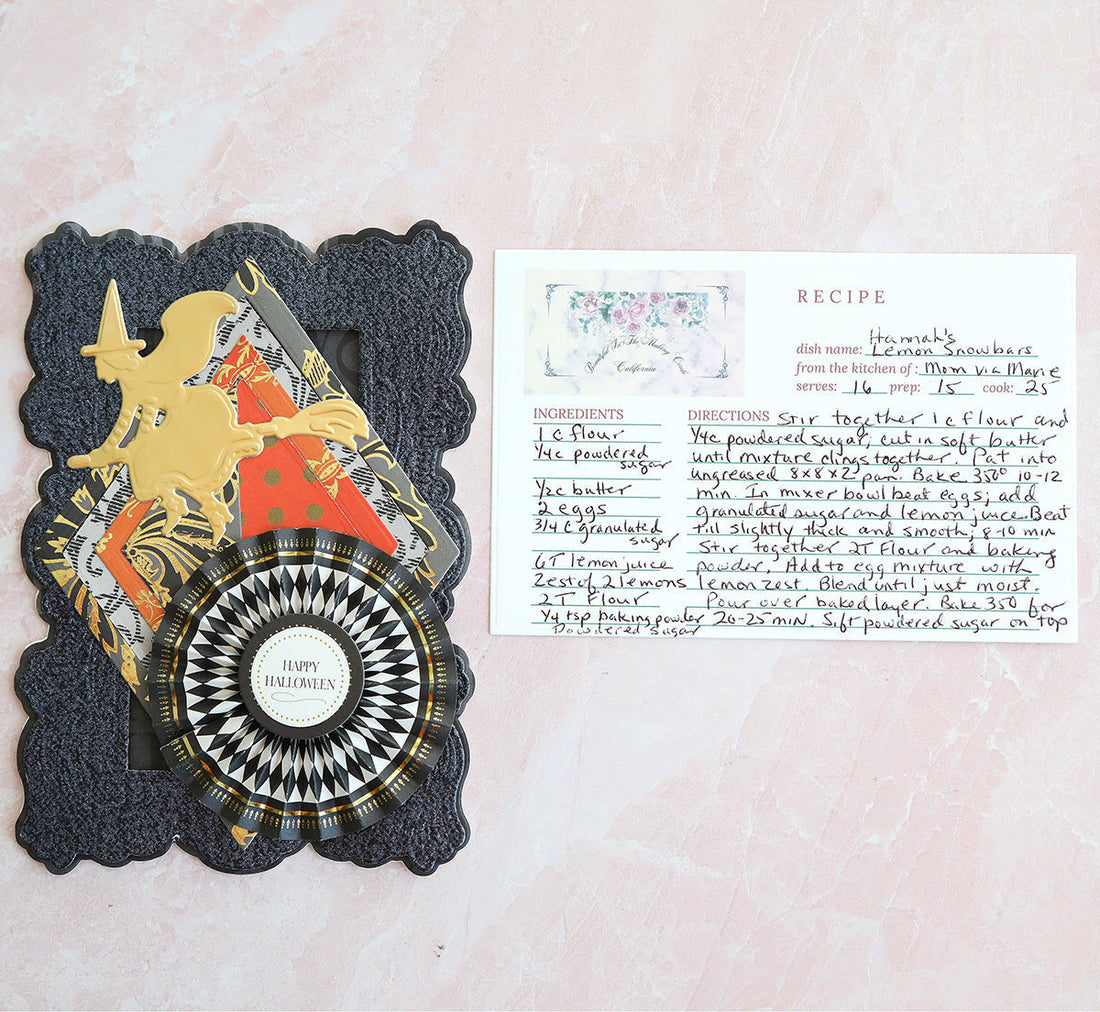 HAPPY
HALLOWEEN
California
RECIPE
dish name: Hannah's
Lemon Snowbars
from the kitchen of: Mom via Marie
serves: 16 prep: 15 cook: 25
INGREDIENTS
1 c flour
1/4c powdered
sugar
1/2c butter
2 eggs
3/4 c granulated
sugar
6T lemon juice
Zest of 2 lemons
2T Flour
1/4 tsp baking powder
Powdered sugar
DIRECTIONS Stir together 1 c flour and
1/4c powdered sugar; cut in soft butter
until mixture clings together. Pat into
ungreased 8x8x2 pan. Bake 350° 10-12
min. In mixer bowl beat eggs; add
granulated sugar and lemon juice. Beat
till slightly thick and smooth; 8-10 min
Stir together 2T Flour and baking
powder, Add to egg mixture with
lemon zest. Blend until just moist.
Pour over baked layer. Bake 350° for
20-25 min. Sift powdered sugar on top